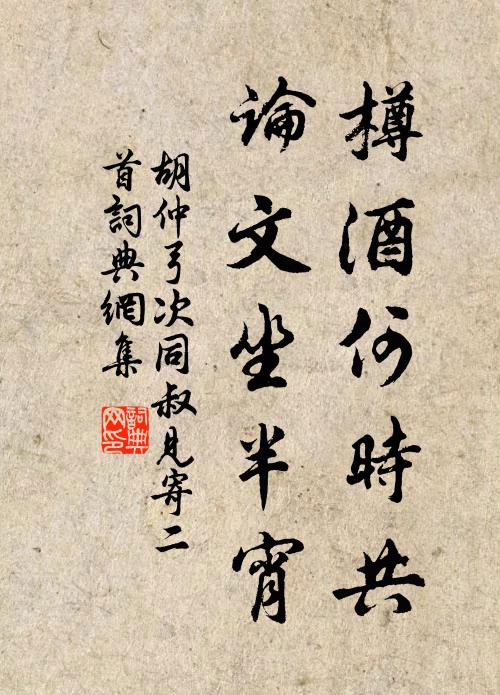 樽酒何時共
論文坐半宵
胡仲弓次同叔見寄二
首詞典網集
詞典
网印